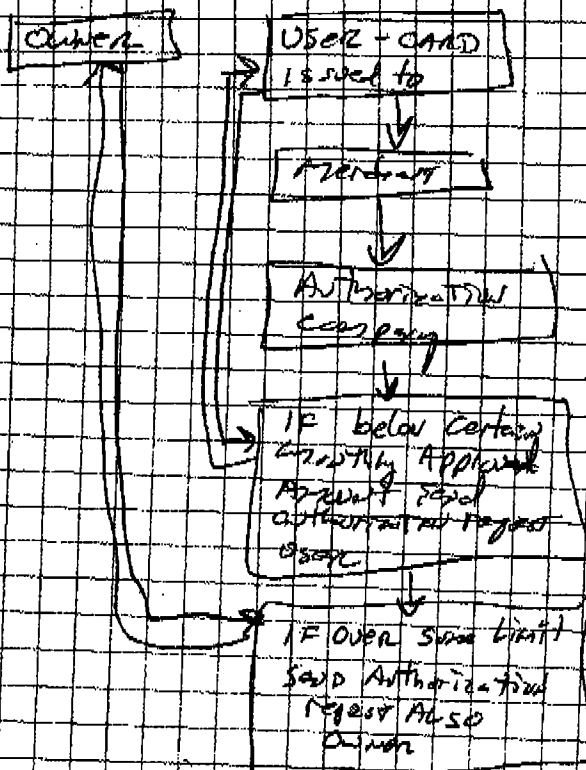 OWNER
USER - CARD
issued to
Merchant
Authorization
Company
IF below certain
monthly Approved
Amount Send
authorization request
USER
IF OVER Same Limit
Send Authorization
request ALSO
Owner